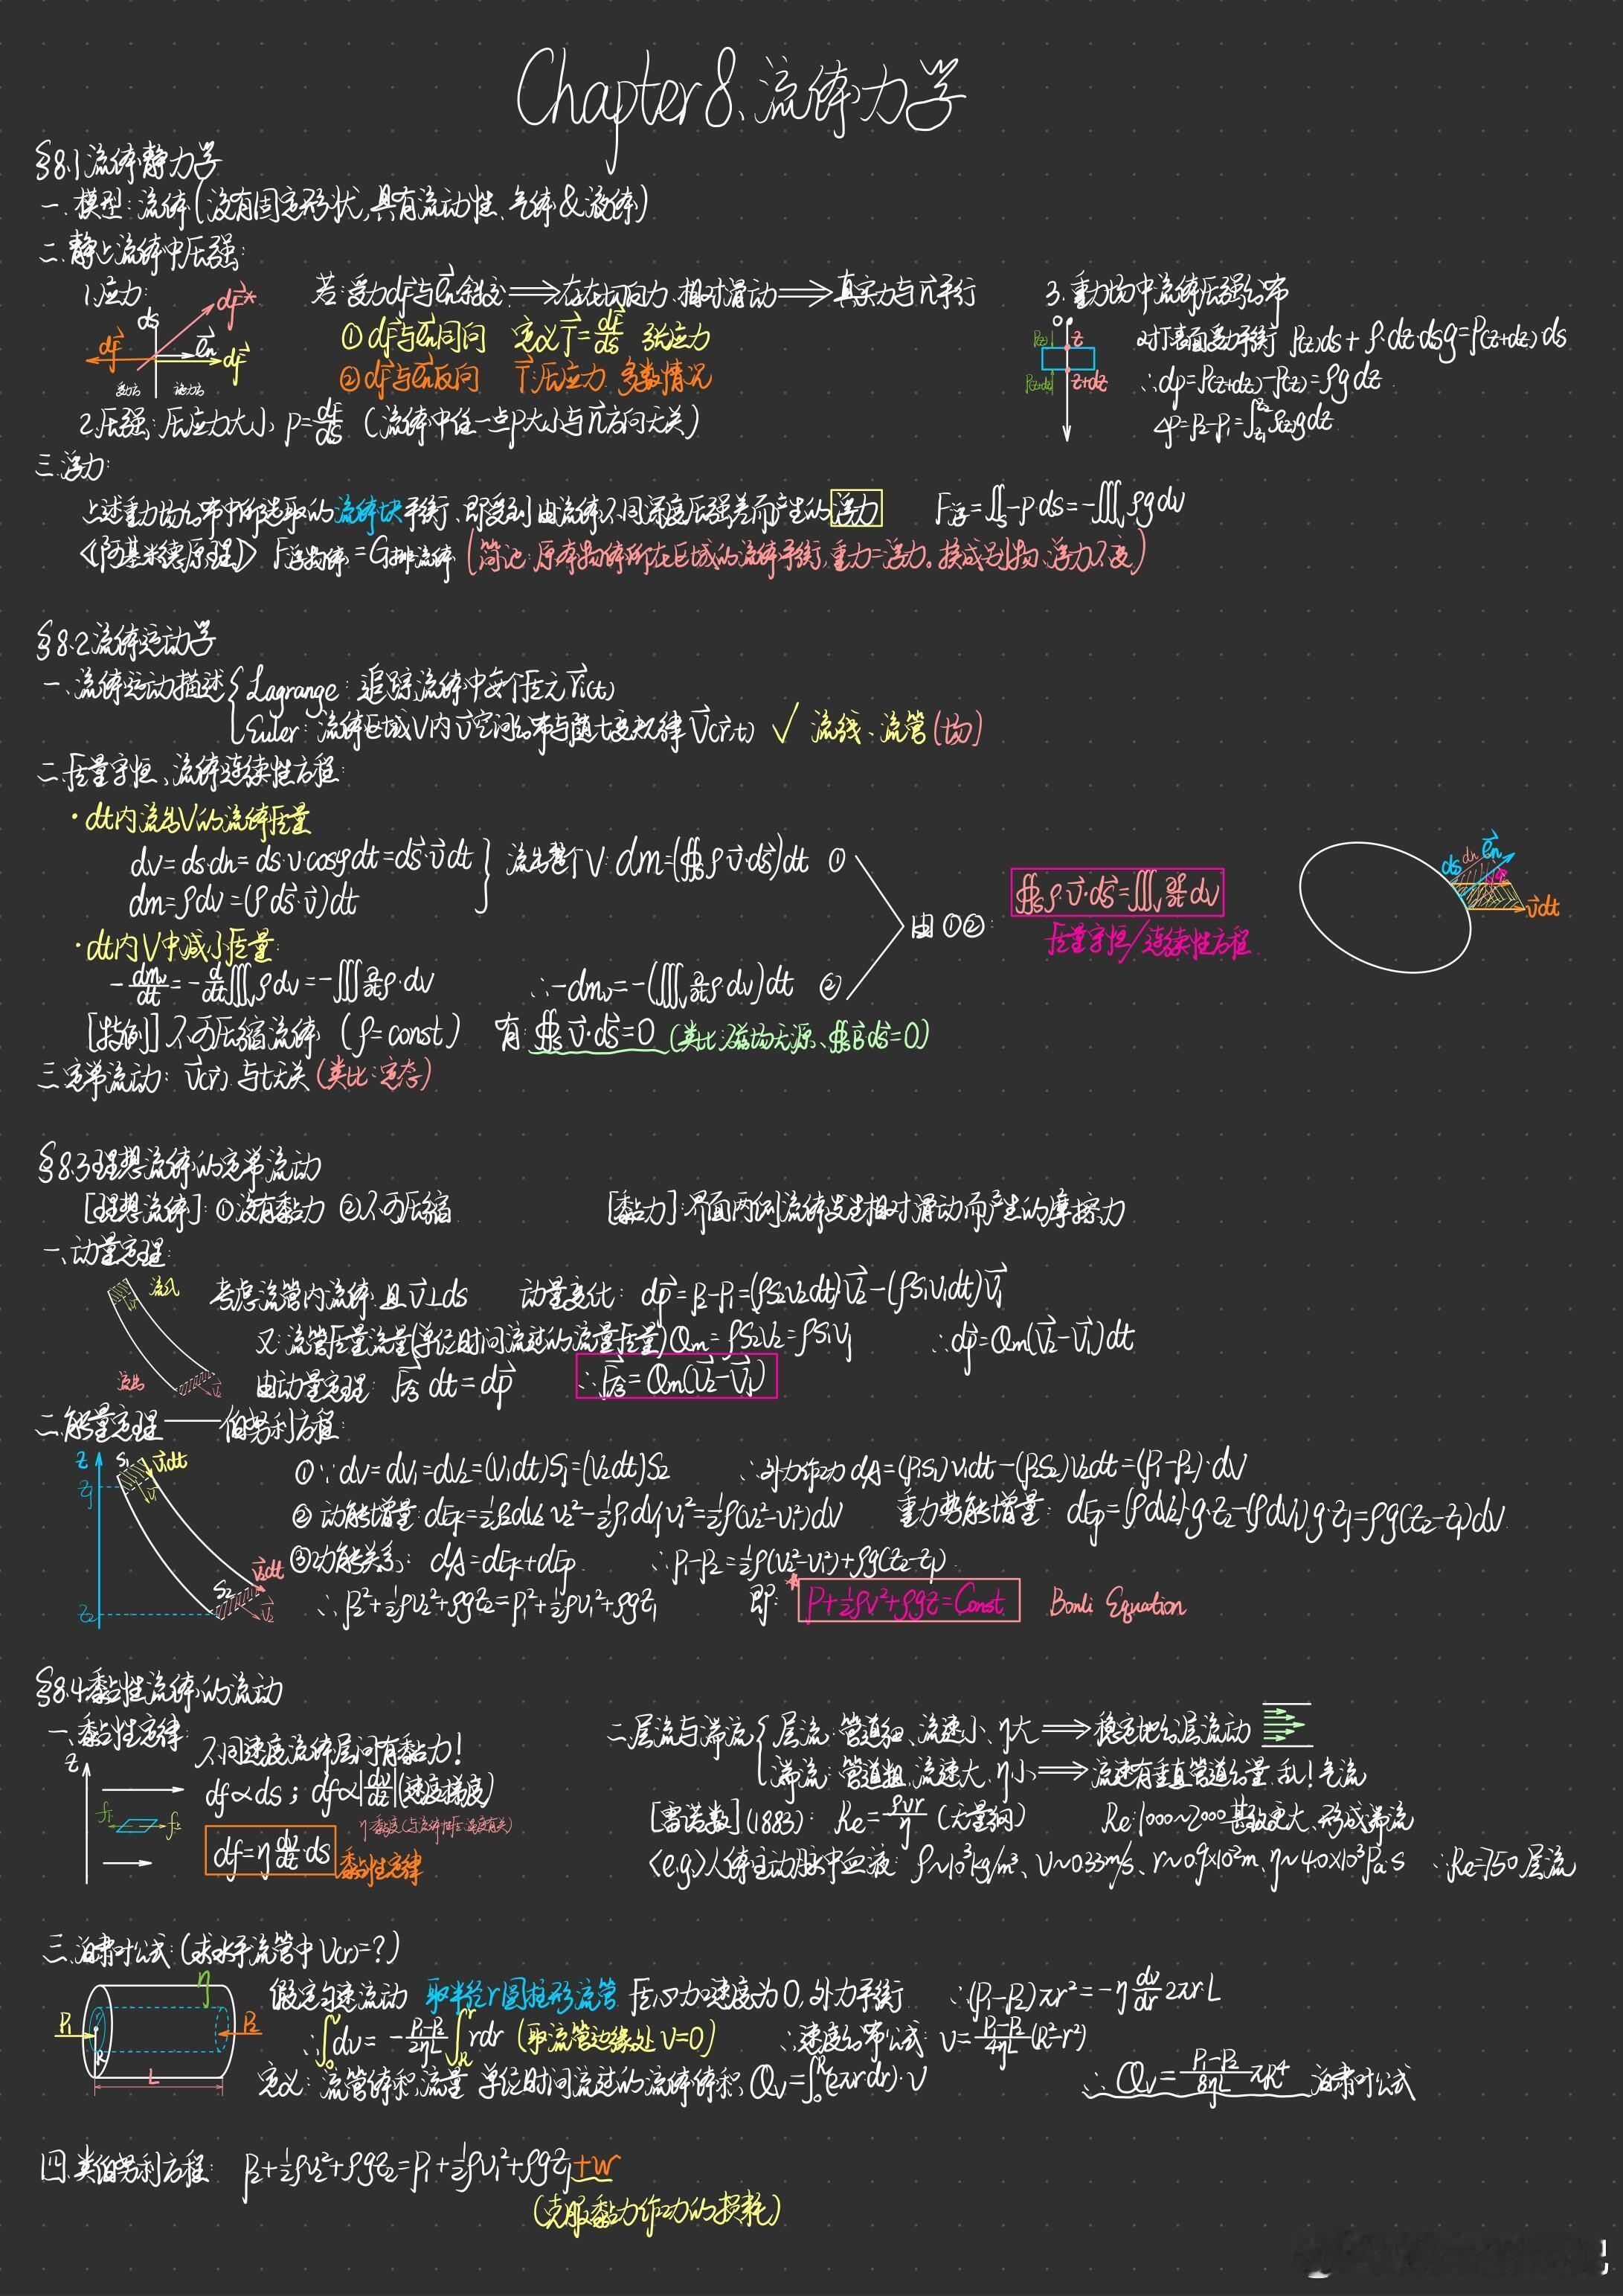 Chapter 8、流体力学
§8.1 流体静力学
一、模型：流体（没有固定形状，具有流动性、气体&液体）
二、静止流体中压强：
1.应力：
若：受力df与en斜交⟹存在切向力、相对滑动⟹真实力与n平行
df* ds en df df
受力方 施力方
①df与en同向 定义T=df/ds 张应力
②df与en反向 T：压应力 多数情况
2.压强：压应力大小、p=df/ds （流体中任一点p大小与n方向无关）
3、重力场中流体压强分布
O P(z) z P(z+dz) z+dz
对顶面受力平衡 P(z)ds+ρ·dz·dsg=P(z+dz)ds
∴dp=P(z+dz)-P(z)=ρgdz
Δp=p₂-p₁=∫_{z₁}^{z₂}ρ(z)gdz
三、浮力：
上述重力场分布中所选取的流体块平衡、即受到由流体不同深度压强差而产生的浮力 F浮=∬s-p·ds=-∭vρgdv
《阿基米德原理》 F浮物体=G排流体（简记：原本物体所在区域的流体平衡，重力=浮力。换成别物、浮力不变）
§8.2 流体运动学
一、流体运动描述{Lagrange：追踪流体中每个质元ri(t)
Euler：流体区域V内v空间分布与随t变规律v(r,t) ✓ 流线、流管（场）
二、质量守恒、流体连续性方程：
·dt内流出V的流体质量
dv=ds·dn=ds·v·cosφdt=ds·vdt
dm=ρdv=(ρds·v)dt
流出整个V：dm=(∯sρv·ds)dt ①
·dt内V中减小质量：
-dmv/dt=-d/dt∭vρdv=-∭∂/∂tρ·dv ∴-dmv=-(∭v∂/∂tρ·dv)dt ②
由①②：
∯sρ·v·ds=∭v∂ρ/∂tdv
质量守恒/连续性方程
ds dn en φ vdt
[特例] 不可压缩流体（ρ=const） 有：∯sv·ds=0（类比：磁场无源、∯sBds=0）
三、定常流动：v(r) 与t无关（类比：定态）
§8.3 理想流体的定常流动
[理想流体]：①没有黏力 ②不可压缩 [黏力]：界面两侧流体发生相对滑动而产生的摩擦力
一、动量定理：
流入 流出
考虑流管内流体、且v⊥ds 动量变化：dp=p₂-p₁=(ρS₂v₂dt)v₂-(ρS₁v₁dt)v₁
又：流管质量流量(单位时间流过的流量质量)Qm=ρS₂v₂=ρS₁v₁ ∴dp=Qm(v₂-v₁)dt
由动量定理：F合dt=dp ∴F合=Qm(v₂-v₁)
二、能量定理——伯努利方程：
z z₁ z₂ S₁ v₁dt S₂ v₂dt v₂
①∵dv=dv₁=dv₂=(v₁dt)S₁=(v₂dt)S₂ ∴外力作功dA=(P₁S₁)v₁dt-(P₂S₂)v₂dt=(P₁-P₂)·dV
②动能增量：dEk=½ρ₂dv₂v₂²-½ρ₁dv₁v₁²=½ρ(v₂²-v₁²)dV 重力势能增量：dEp=(ρdv₂)·g·z₂-(ρdv₁)g·z₁=ρg(z₂-z₁)dv
③功能关系：dA=dEk+dEp ∴p₁-p₂=½ρ(v₂²-v₁²)+ρg(z₂-z₁)
∴p₂²+½ρv₂²+ρgz₂=p₁²+½ρv₁²+ρgz₁ 即：P+½ρv²+ρgz=Const. Bonli Equation
§8.4 黏性流体的流动
一、黏性定律：不同速度流体层间有黏力！
z
df∝ds；df∝|dv/dz|(速度梯度)
η黏度(与流体性质、温度有关)
df=η dv/dz·ds 黏性定律
二、层流与湍流{层流：管道细、流速小、η大⟹稳定地分层流动
湍流：管道粗、流速大、η小⟹流速有垂直管道分量、乱！气流
[雷诺数](1883)：Re=ρvr/η（无量纲） Re：1000~2000甚致更大、形成湍流
<e.g.>人体主动脉中血液：ρ~10³kg/m³、v~0.33m/s、r~0.9×10²m、η~4.0×10³Pa·s ∴Re=750 层流
三、泊肃叶公式：（求水平流管中V(r)=?）
P₁ η R L P₂
假定匀速流动 取半径r圆柱形流管 质心加速度为0，外力平衡 ∴(P₁-P₂)πr²=-η dv/dr 2πr·L
∴∫₀ᵛdv=-(P₁-P₂)/(2ηL)∫_R^r rdr（取流管边缘处v=0） ∴速度分布公式：v=(P₁-P₂)/(4ηL)(R²-r²)
定义：流管体积流量 单位时间流过的流体体积，Qv=∫₀ᴿ(2πrdr)·v ∴Qv=(P₁-P₂)/(8ηL)πR⁴ 泊肃叶公式
四、类伯努利方程：p₂+½ρv₂²+ρgz₂=p₁+½ρv₁²+ρgz₁+w
（克服黏力作功的损耗）